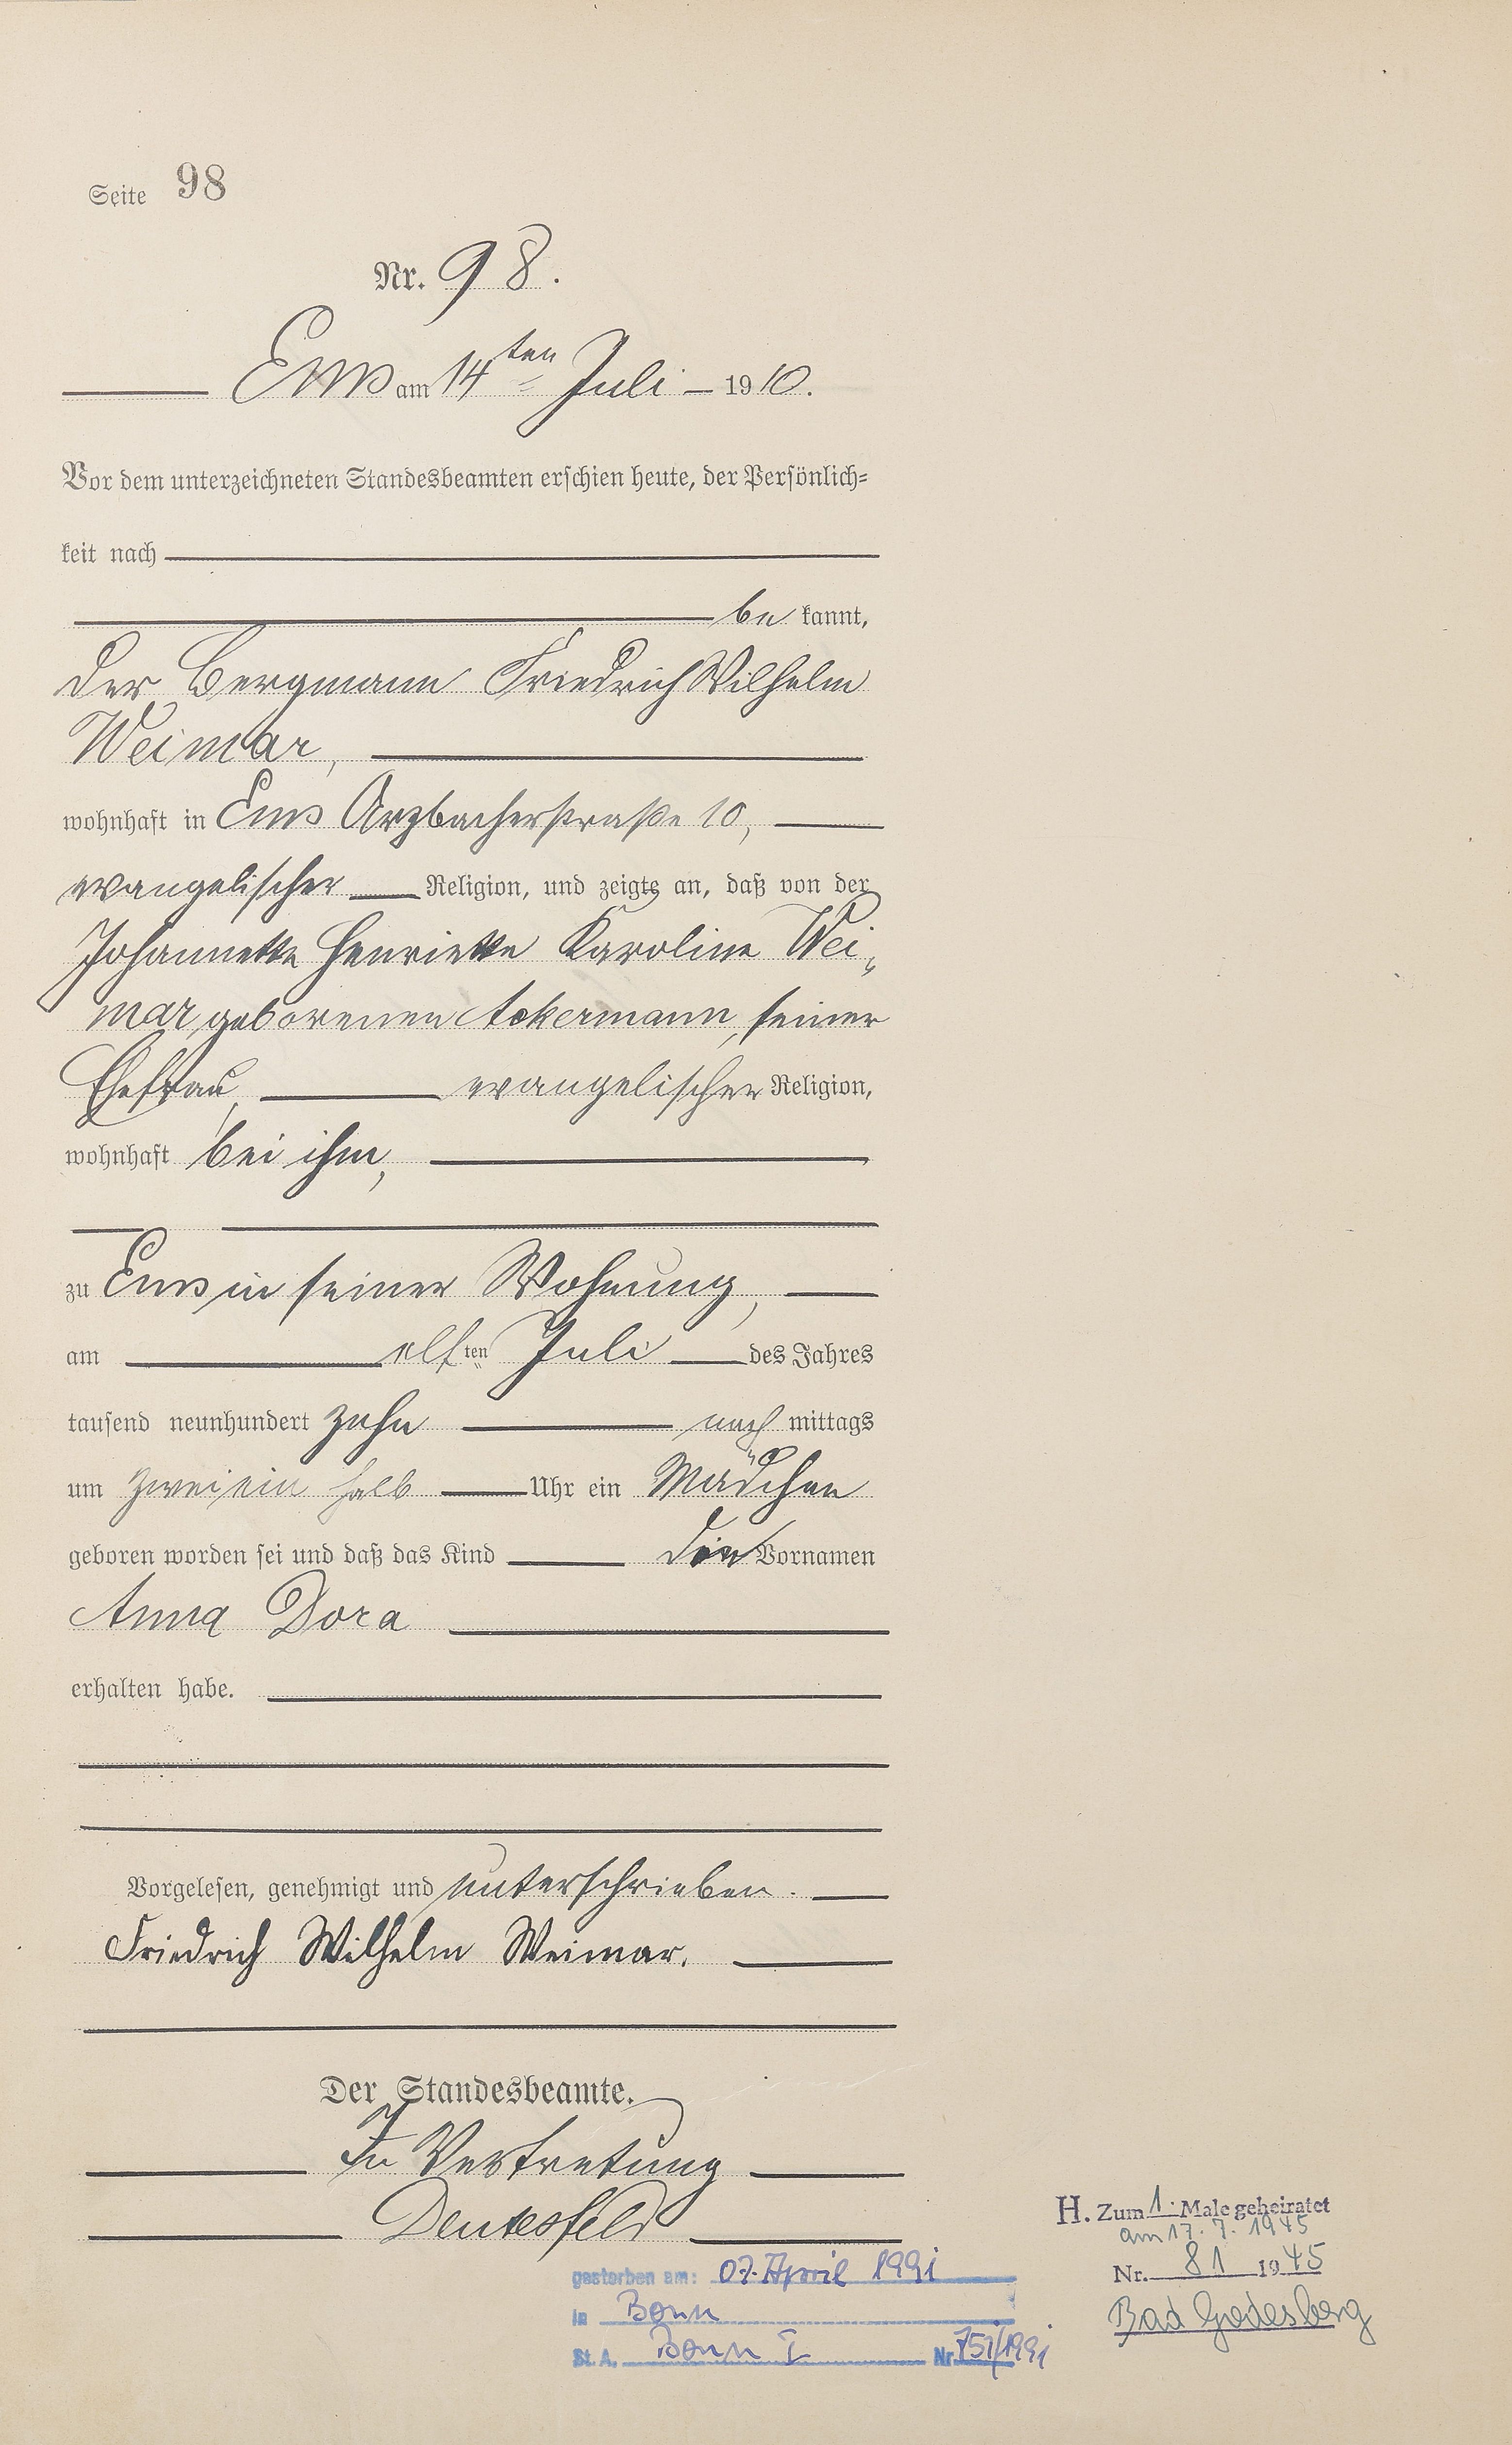 Seite 98
Nr. 98.
Ems am 14ten Juli 1910.
Vor dem unterzeichneten Standesbeamten erschien heute, der Persönlich=
keit nach
be kannt,
der Bergmann Friedrich Wilhelm
Weimar,
wohnhaft in Ems Arzbacherstraße 10,
evangelischer Religion, und zeigte an, daß von der
Johannette Henriette Karoline Wei„
mar geborenen Ackermann, seiner
Ehefrau, evangelischer Religion,
wohnhaft bei ihm,
zu Ems in seiner Wohnung,
am elften Juli des Jahres
tausend neunhundert zehn nach mittags
um zwei ein halb Uhr ein Mädchen
geboren worden sei und daß das Kind die Vornamen
Anna Dora
erhalten habe.
Vorgelesen, genehmigt und unterschrieben.
Friedrich Wilhelm Weimar.
Der Standesbeamte.
In Vertretung
Deutesfeld
H. Zum 1. Male geheiratet
am 17. 7. 1945
Nr. 81 1945
Bad Godesberg
gestorben am: 07. April 1991
in Bonn
St. A. Bonn I Nr. 751/1991